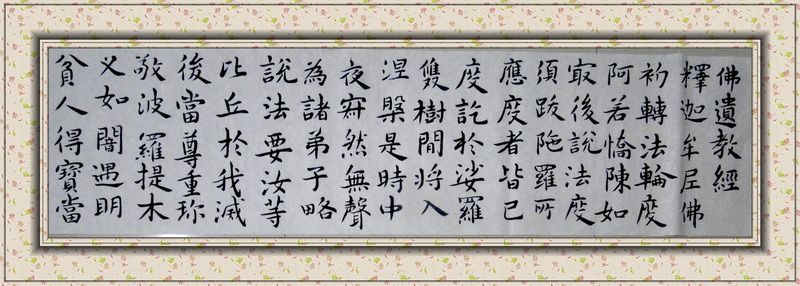 佛遺教經
釋迦牟尼佛
初轉法輪度
阿若憍陳如
冣後說法度
須跋陁羅所
應度者皆已
度訖於娑羅
雙樹閒將入
涅槃是時中
夜寂然無聲
為諸弟子略
說法要汝等
比丘於我滅
後當尊重珎
敬波羅提木
叉如闇遇明
貧人得寶當